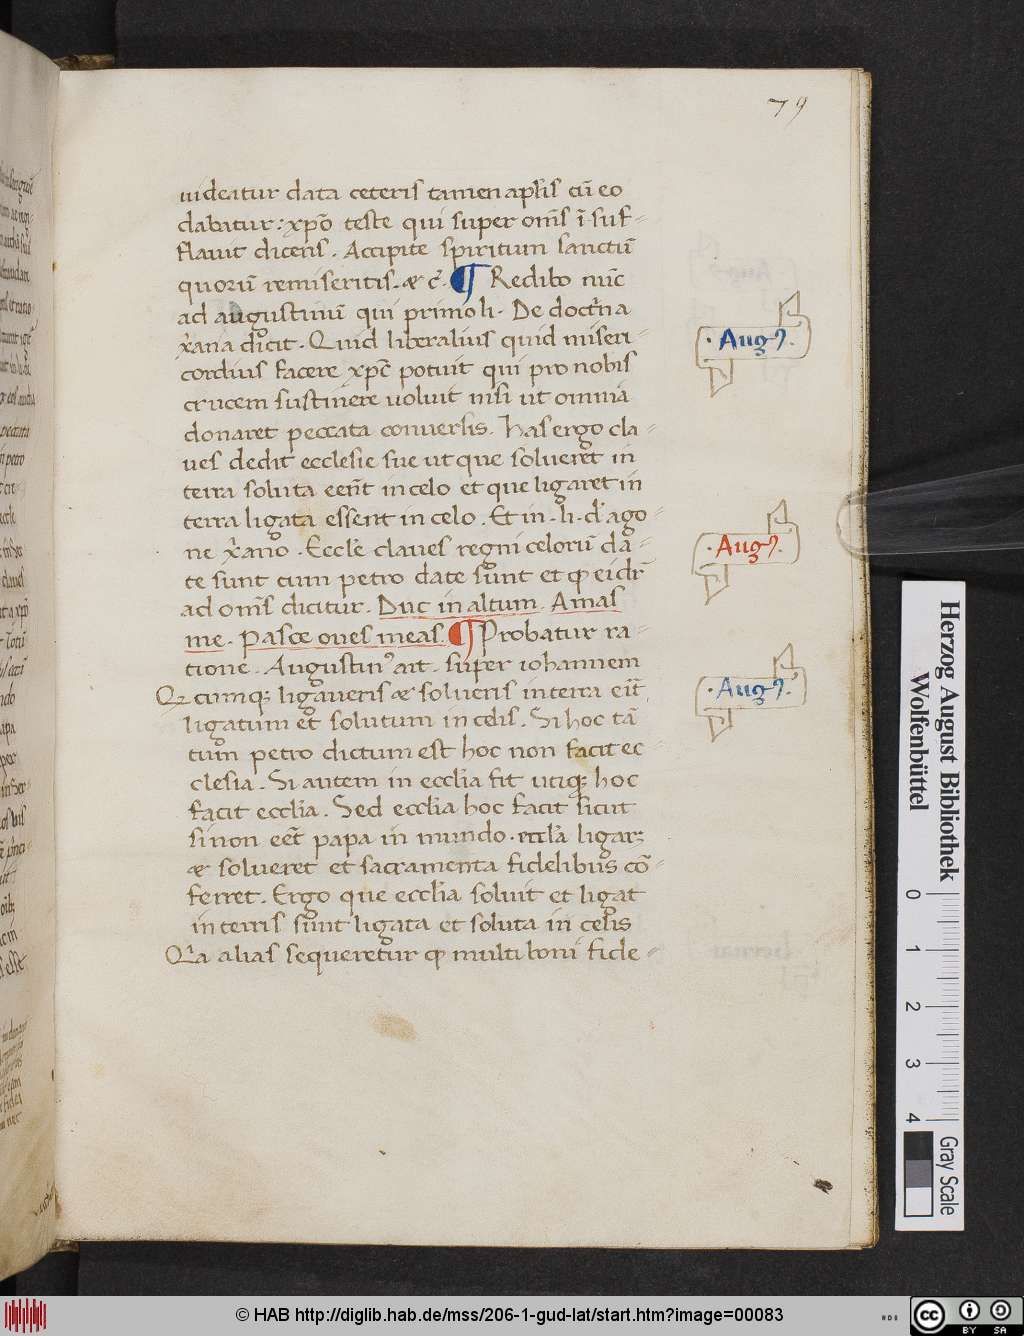 79
uideatur data ceteris tamen apl̄is cū eo
dabatur: xp̄o teste qui super om̄s ī suf-
flauit dicens. Accipite spiritum sanctū
quorū remiseritis. & c̄. ¶ Redibo nūc
ad augustinū qui primo li. De doct̄na
x̄ana dicit. Quid liberalius quid miseri-
cordius facere xp̄c potuit qui pro nobis
crucem sustinere uoluit nisi ut omnia
donaret peccata conuersis. Has ergo cla-
ues dedit ecclesie sue ut que solueret in
terra soluta eēnt in celo et que ligaret in
terra ligata essent in celo. Et in .li. d̄ ago-
ne x̄ano. Eccl̄e claues regni celorū da-
te sunt cum petro date sunt et ꝙ ei dr̄
ad om̄s dicitur. Duc in altum. Amas
me. Pasce oues meas. ¶ Probatur ra-
tione. Augustinꝰ ait. super iohannem
Q̄cumqꝫ ligaueris & solueris in terra eīt
ligatum et solutum in celis. Si hoc tā-
tum petro dictum est hoc non facit ec-
clesia. Si autem in eccl̄ia fit utiqꝫ hoc
facit eccl̄ia. Sed eccl̄ia hoc facit sicut
si non eēt papa in mundo. eccl̄a ligarꝫ
& solueret et sacramenta fidelibus cō-
ferret. Ergo que eccl̄ia soluit et ligat
in terris sunt ligata et soluta in celis
Q̄a alias sequeretur ꝙ multi boni fide-
.Augꝰ.
.Augꝰ.
.Augꝰ.
Herzog August Bibliothek
Wolfenbüttel
0 1 2 3 4
Gray Scale
© HAB http://diglib.hab.de/mss/206-1-gud-lat/start.htm?image=00083
cc BY SA